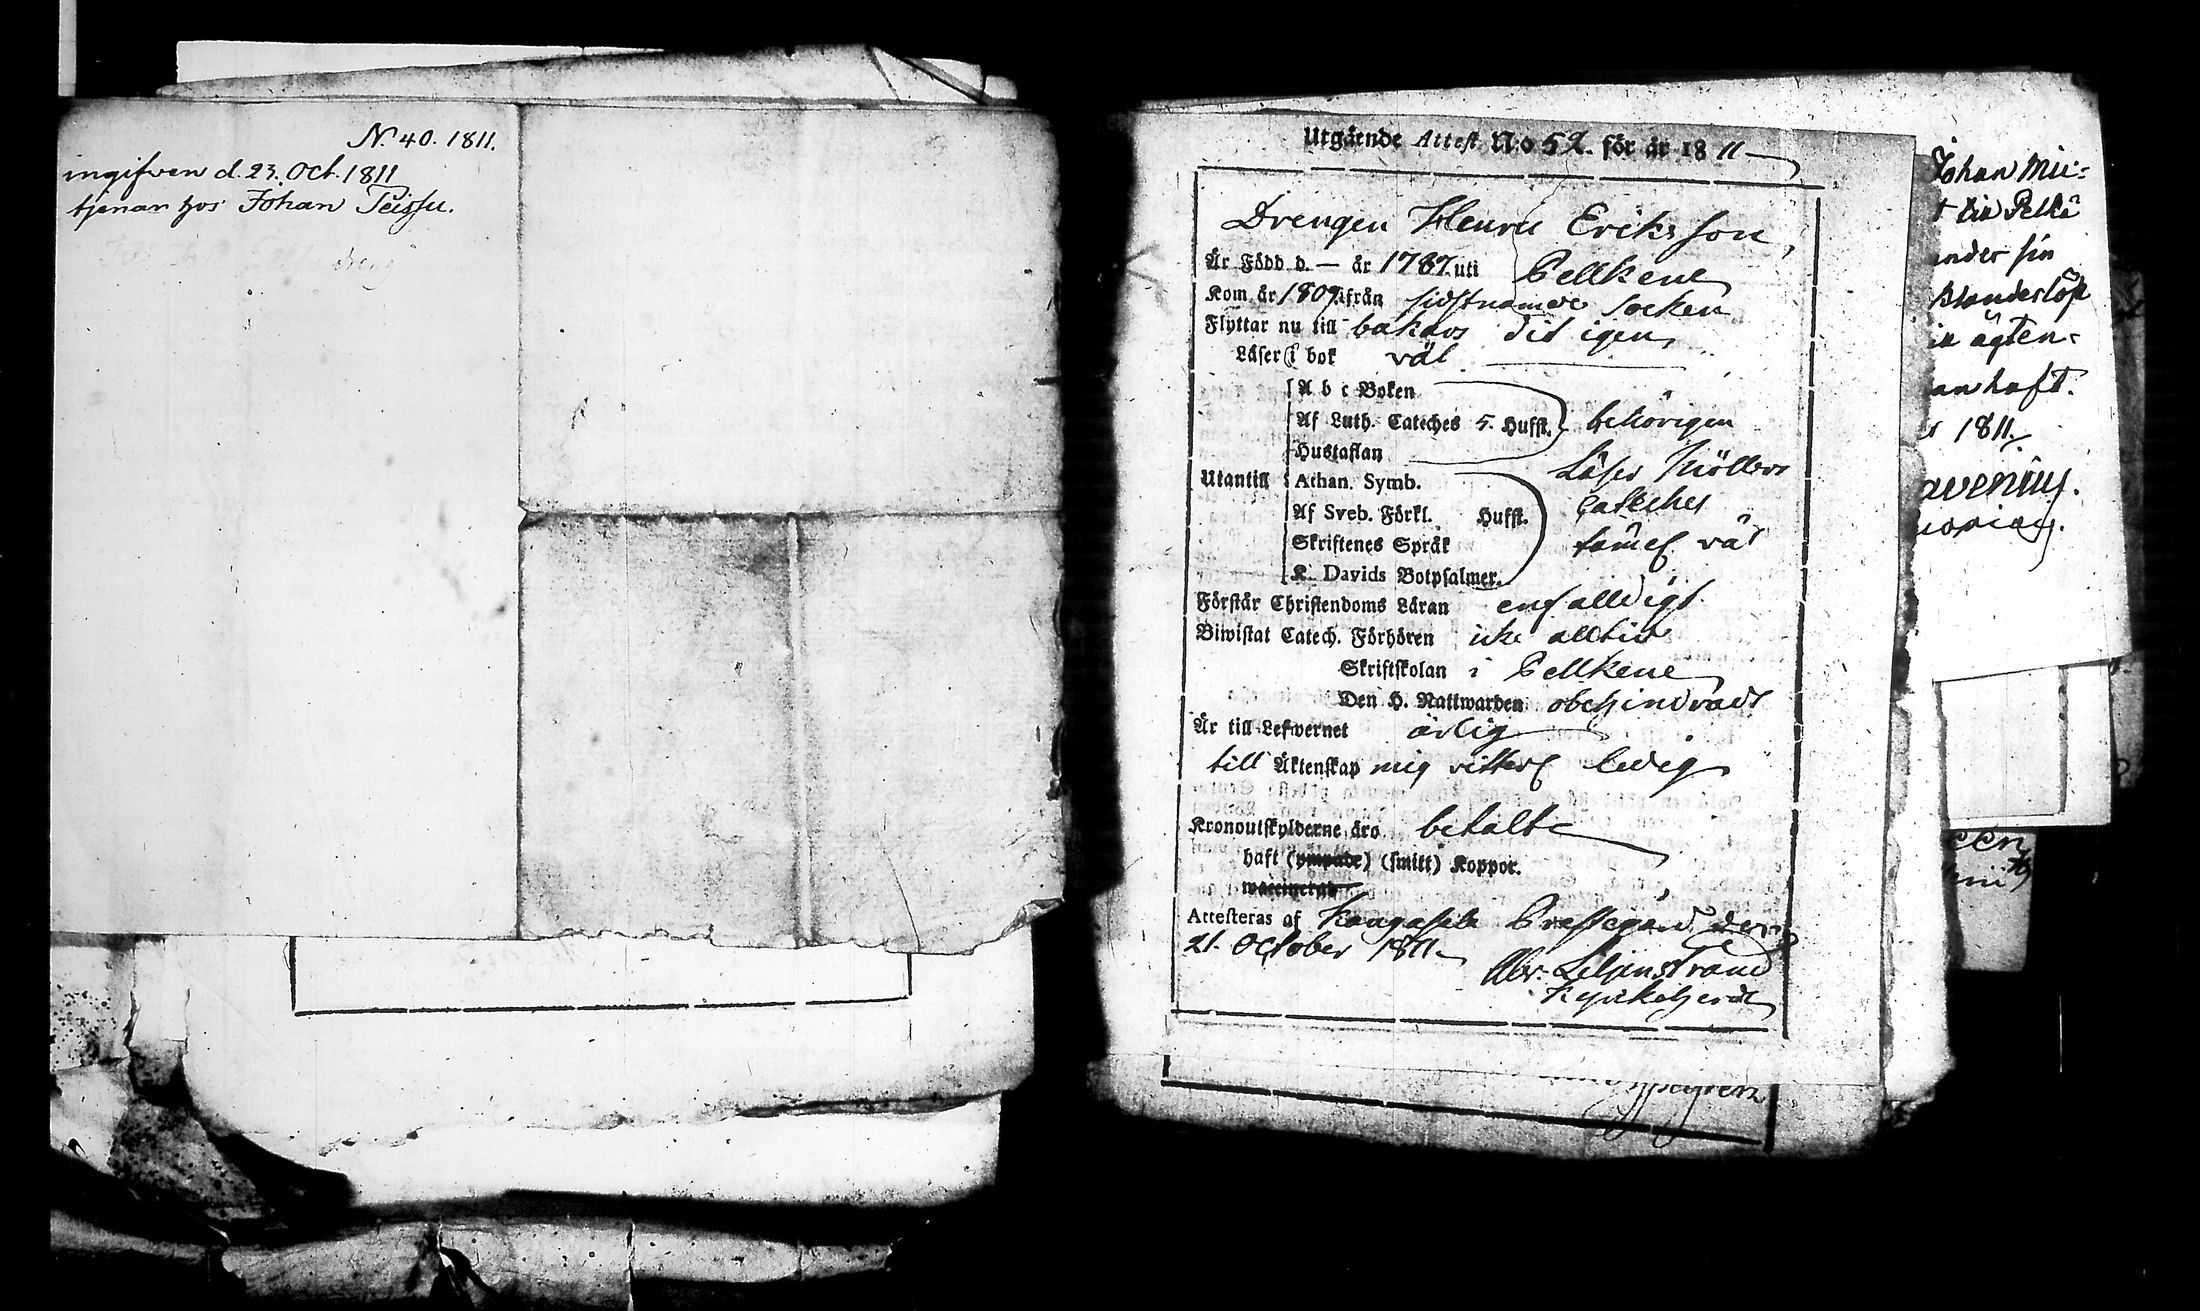 N. 40. 1811.
ingifven d. 23. Oct. 1811
tjenar hos Johan Peissu.
Utgående Attest N:o 52. för år 1811
Drengen Henric Eriksson,
Är Född d. — år 1787 uti Pellkene
Kom år 1809 ifrån sidstnamde socken
Flyttar nu till bakars dit igen,
Läser i bok väl
A b c Boken
Af Luth. Cateches 5. Hufst. behörigen
Hustaflan
Utantill
Athan. Symb. Läser Möllers
Af Sveb. Förkl. Hufst. Cateches
Skriftenes Språk
K. Davids Botpsalmer.
Förstår Christendoms Läran enfalldigt
Biwistat Catech. Förhören icke alltid
Skriftskolan i Pellkene
Den H. Nattwarden obehindradt
Är till Lefwernet ärlig
till Äktenskap mig vitterl. ledig
Kronoutskylderne äro betalte
haft (ympade) (smitt) Koppor.
waccinerad
Attesteras af Kangasala Prestegård den
21. October 1811.
Abr. Liljenstrand
Kyrkoherde
Johan Mii-
Pelkä
ander sin
n ägten-
an haft.
1811.
avenius.